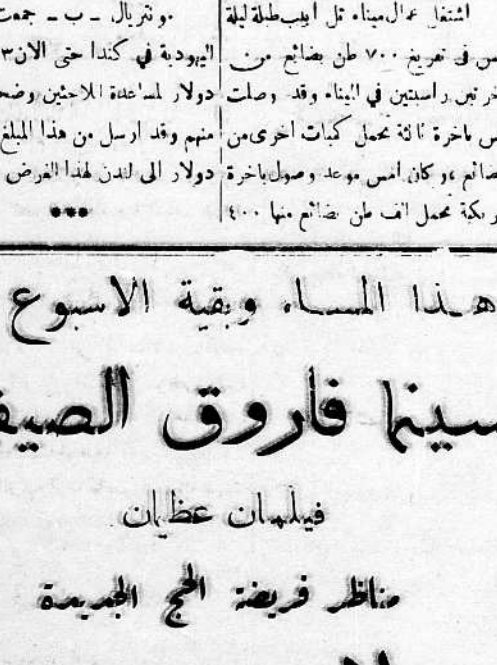 اشتغل عمال ميناء تل ابيب طيلة ليلة
في تفريغ ٧٠٠ طن بضائع من
راسيتين في الميناء وقد وصلت
باخرة ثالثة تحمل كميات اخرى من
وكان امس موعد وصول باخرة
تحمل الف طن بضائع منها ٤٠٠
مونتريال - ب - جمعت
اليهودية في كندا حتى الان
دولار لمساعدة اللاجئين
منهم وقد ارسل من هذا المبلغ
دولار الى لندن لهذا الغرض
***
هذا المساء وبقية الاسبوع
سينما فاروق
فيلمان عظيمان
مناظر فريضة الحج الجديدة